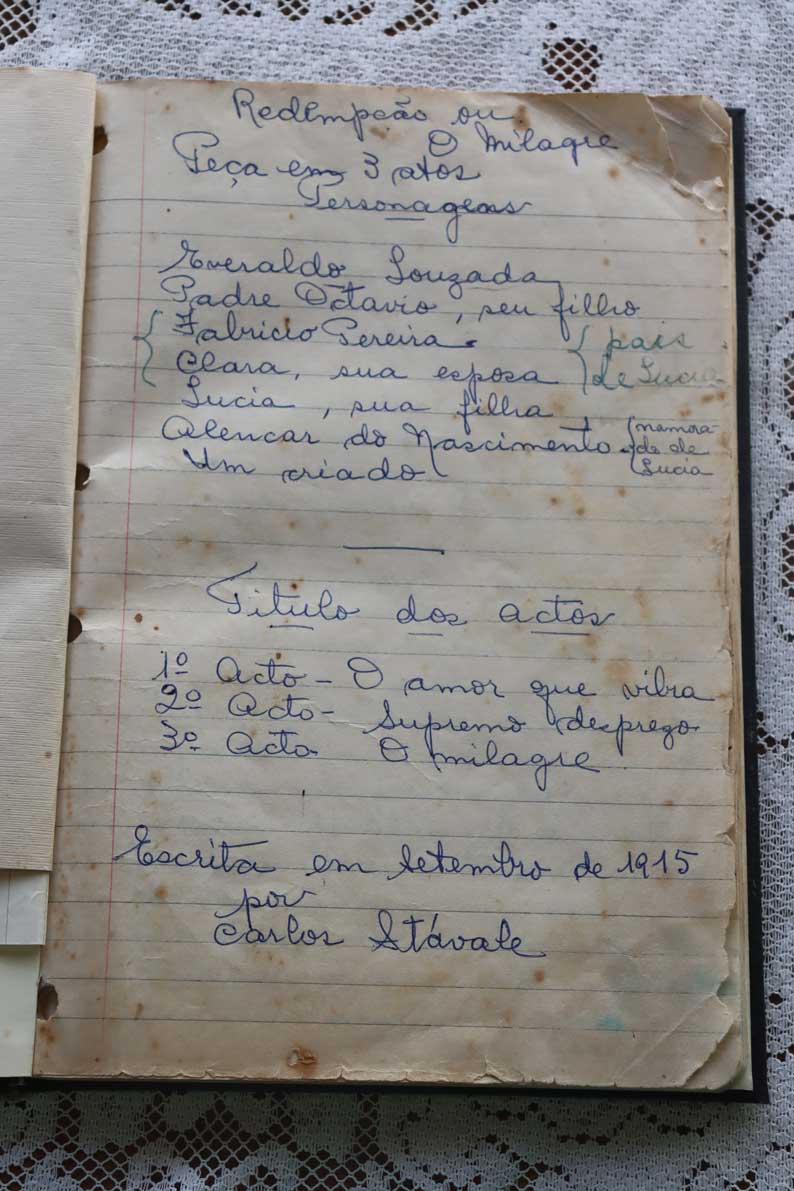 Redempção ou
O Milagre
Peça em 3 atos
Personagens
Everaldo Louzada
Padre Octavio, seu filho
Fabricio Pereira. } pais
Clara, sua esposa } de Lucia
Lucia, sua filha
Alencar do Nascimento. (namora-
do de
Lucia
Um criado
Titulo dos actos
1º Acto - O amor que vibra
2º Acto - Supremo desprezo
3º Acto O milagre
Escrita em Setembro de 1915
por
Carlos Stávale